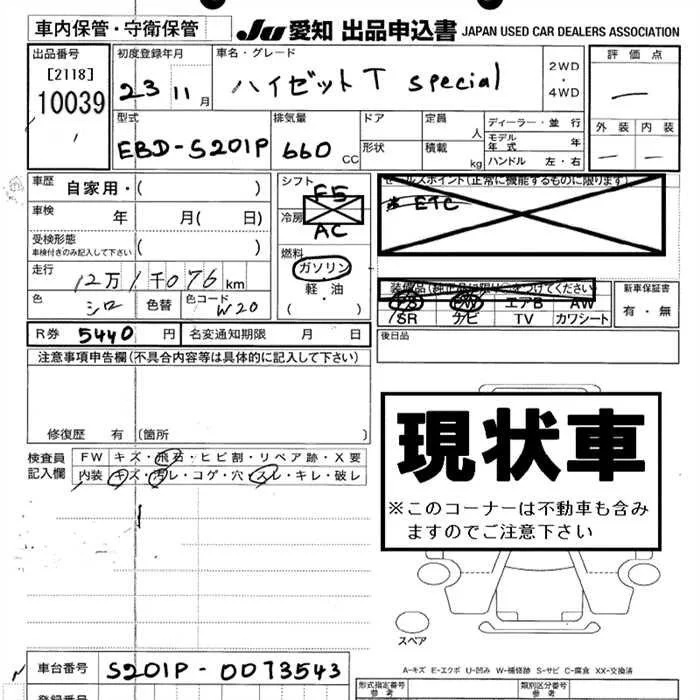 車内保管・守衛保管 JU 愛知 出品申込書 JAPAN USED CAR DEALERS ASSOCIATION
出品番号 初度登録年月 車名・グレード 評価点
[2118] 23 11月 ハイゼットT special 2WD・4WD
10039
型式 排気量 ドア 定員 人 ディーラー・並行 外装 内装
EBD-S201P 660 CC 形状 積載 kg モデル年式 年
ハンドル 左・右
車歴 自家用・( ) シフト F5 セールスポイント(正常に機能するものに限ります)
車検 年 月( 日) 冷房 AC ETC
受検形態 ( )
車検付きのみ記入して下さい
燃料
走行 12万1千076km ガソリン・軽・油 装備品(純正品に限り○をつけてください) 新車保証書
色 シロ 色替 色コード W20 ( ) PS PW エアB AW 有・無
SR ナビ TV カワシート
R券 5440 円 名変通知期限 月 日 後日品
注意事項申告欄(不具合内容等は具体的に記入して下さい)
修復歴 有 (箇所 )
現状車
※このコーナーは不動車も含み
ますのでご注意下さい
検査員記入欄 FW キズ・飛石・ヒビ割・リペア跡・X要
内装 キズ・汚レ・コゲ・穴・スレ・キレ・破レ
スペア
A-キズ E-エクボ U-凹み W-補修跡 S-サビ C-腐食 XX-交換済
車台番号 S201P-0073543
登録番号 形式指定番号 参考 類別区分番号 参考